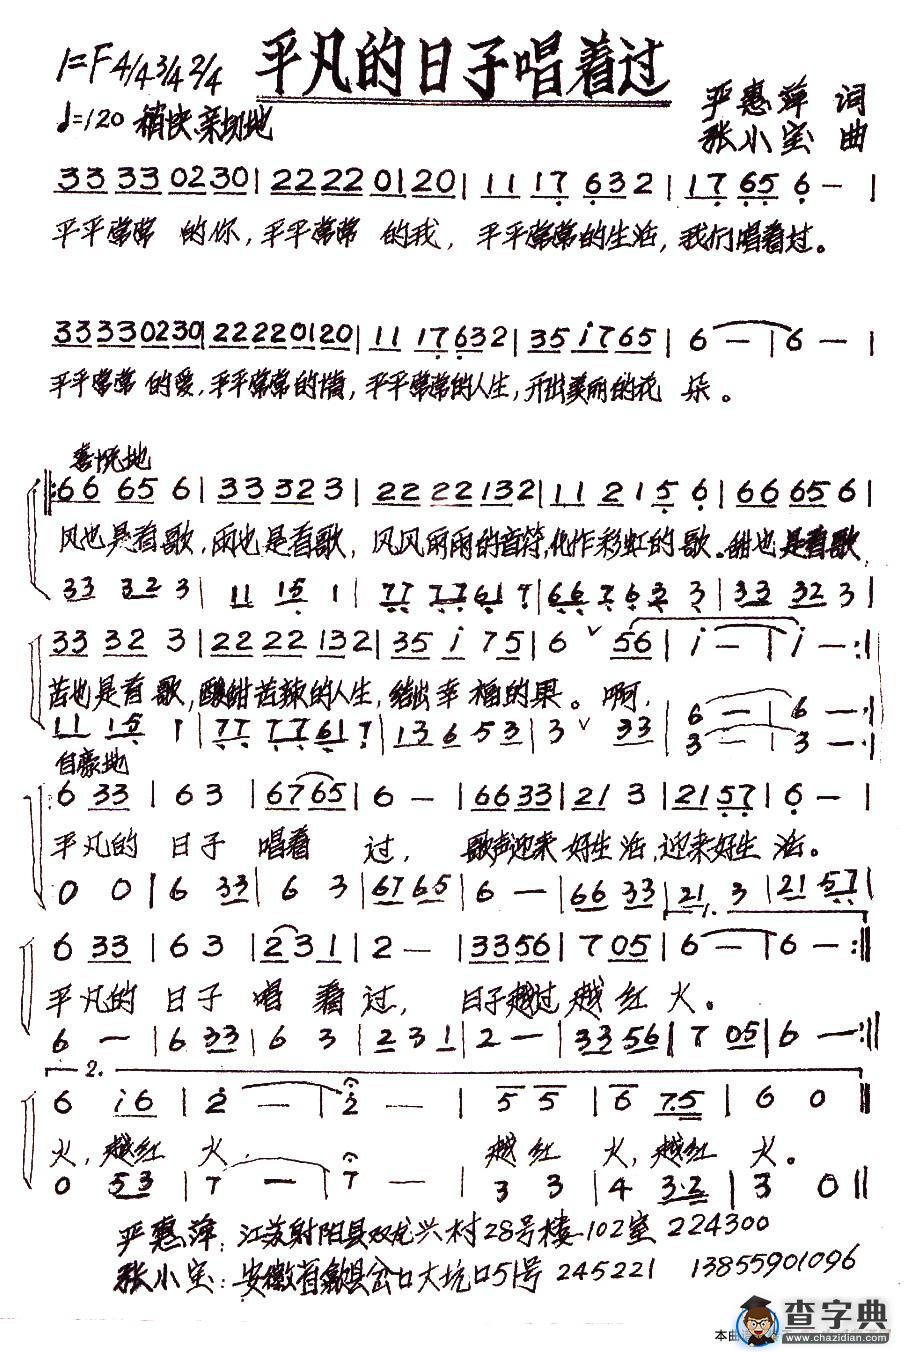 平凡的日子唱着过
1=F 4/4 3/4 2/4
♩=120 稍快亲切地
严惠萍 词
张小宝 曲
33 33 0230 | 2222 0120 | 11 17 632 | 17 65 6 — |
平平常常 的你,平平常常 的我, 平平常常的生活, 我们唱着过。
33330230 | 22220120 | 11 17632 | 35 i765 | 6 — | 6 — |
平平常常 的爱,平平常常的情,平平常常的人生,开出美丽的花 朵。
喜悦地
66 65 6 | 33 323 | 22 22 132 | 11 21 5 6 | 66 65 6 |
风也是首歌,雨也是首歌, 风风雨雨的音符,化作彩虹的歌。甜也是首歌
33 32 3 | 11 15 1 | 77 77 61 7 | 66 76 3 3 | 33 32 3 |
33 32 3 | 22 22 132 | 35 i 75 | 6 ˅ 56 | i — | i — :|
苦也是首歌,酸甜苦辣的人生,结出幸福的果。啊,
11 15 1 | 77 77 61 7 | 13 65 3 | 3 ˅ 33 | 6 — | 6 — :|
3 — | 3 —
自豪地
6 33 | 6 3 | 6765 | 6 — | 6633 | 21 3 | 21 57 | 6 — |
平凡的 日子 唱着 过, 歌声迎来 好生活,迎来好生 活。
0 0 | 6 33 | 6 3 | 67 65 | 6 — | 66 33 | 21 3 | 21 57 |
1.
6 33 | 6 3 | 231 | 2 — | 3356 | 7 05 | 6 — | 6 — :||
平凡的 日子 唱 着 过, 日子越过 越红 火。
6 — | 6 33 | 6 3 | 2 3 1 | 2 — | 33 56 | 7 05 | 6 — :||
2.
6 i6 | 2 — | 2 — | 5 5 | 6 7.5 | 6 0 ||
火,越红 火, 越 红 火,越红 火。
0 53 | 7 — | 7 — | 3 3 | 4 3.2 | 3 0 ||
严惠萍:江苏射阳县双龙兴村28号楼102室 224300
张小宝:安徽省歙县岔口大坑口51号 245221 13855901096
查字典
www.chazidian.com